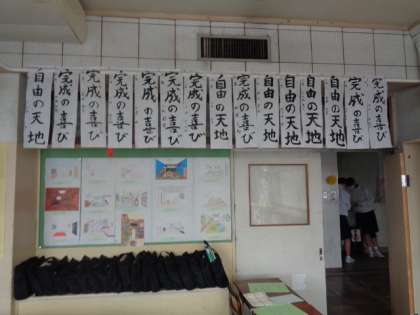 自由の天地
完成の喜び
完成の喜び
完成の喜び
完成の喜び
完成の喜び
完成の喜び
自由の天地
完成の喜び
自由の天地
自由の天地
自由の天地
自由の天地
完成の喜び
完成の喜び